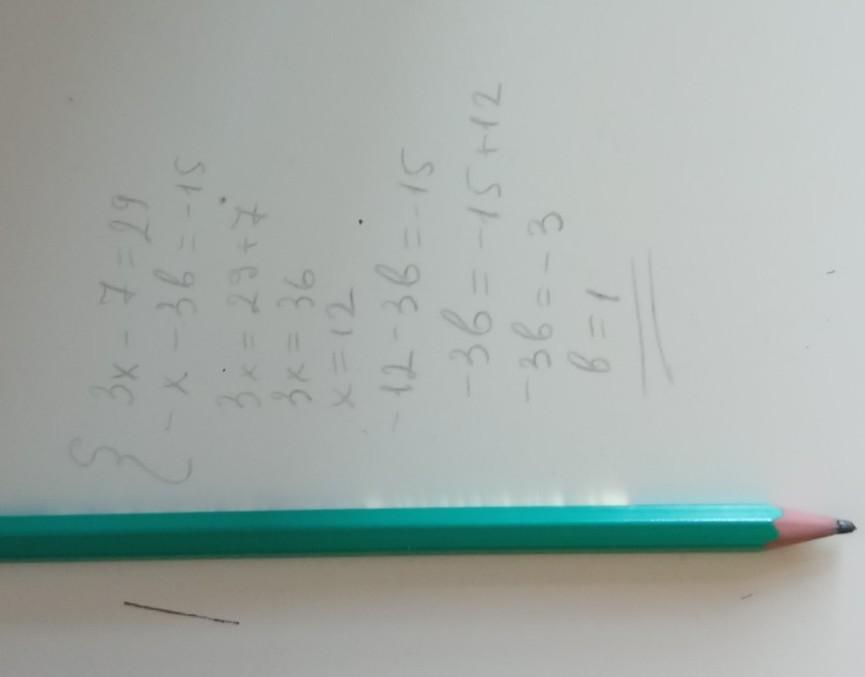 { 3x - 7 = 29
- x - 3b = -15
3x = 29 + 7
3x = 36
x = 12
-12 - 3b = -15
-3b = -15 + 12
-3b = -3
b = 1